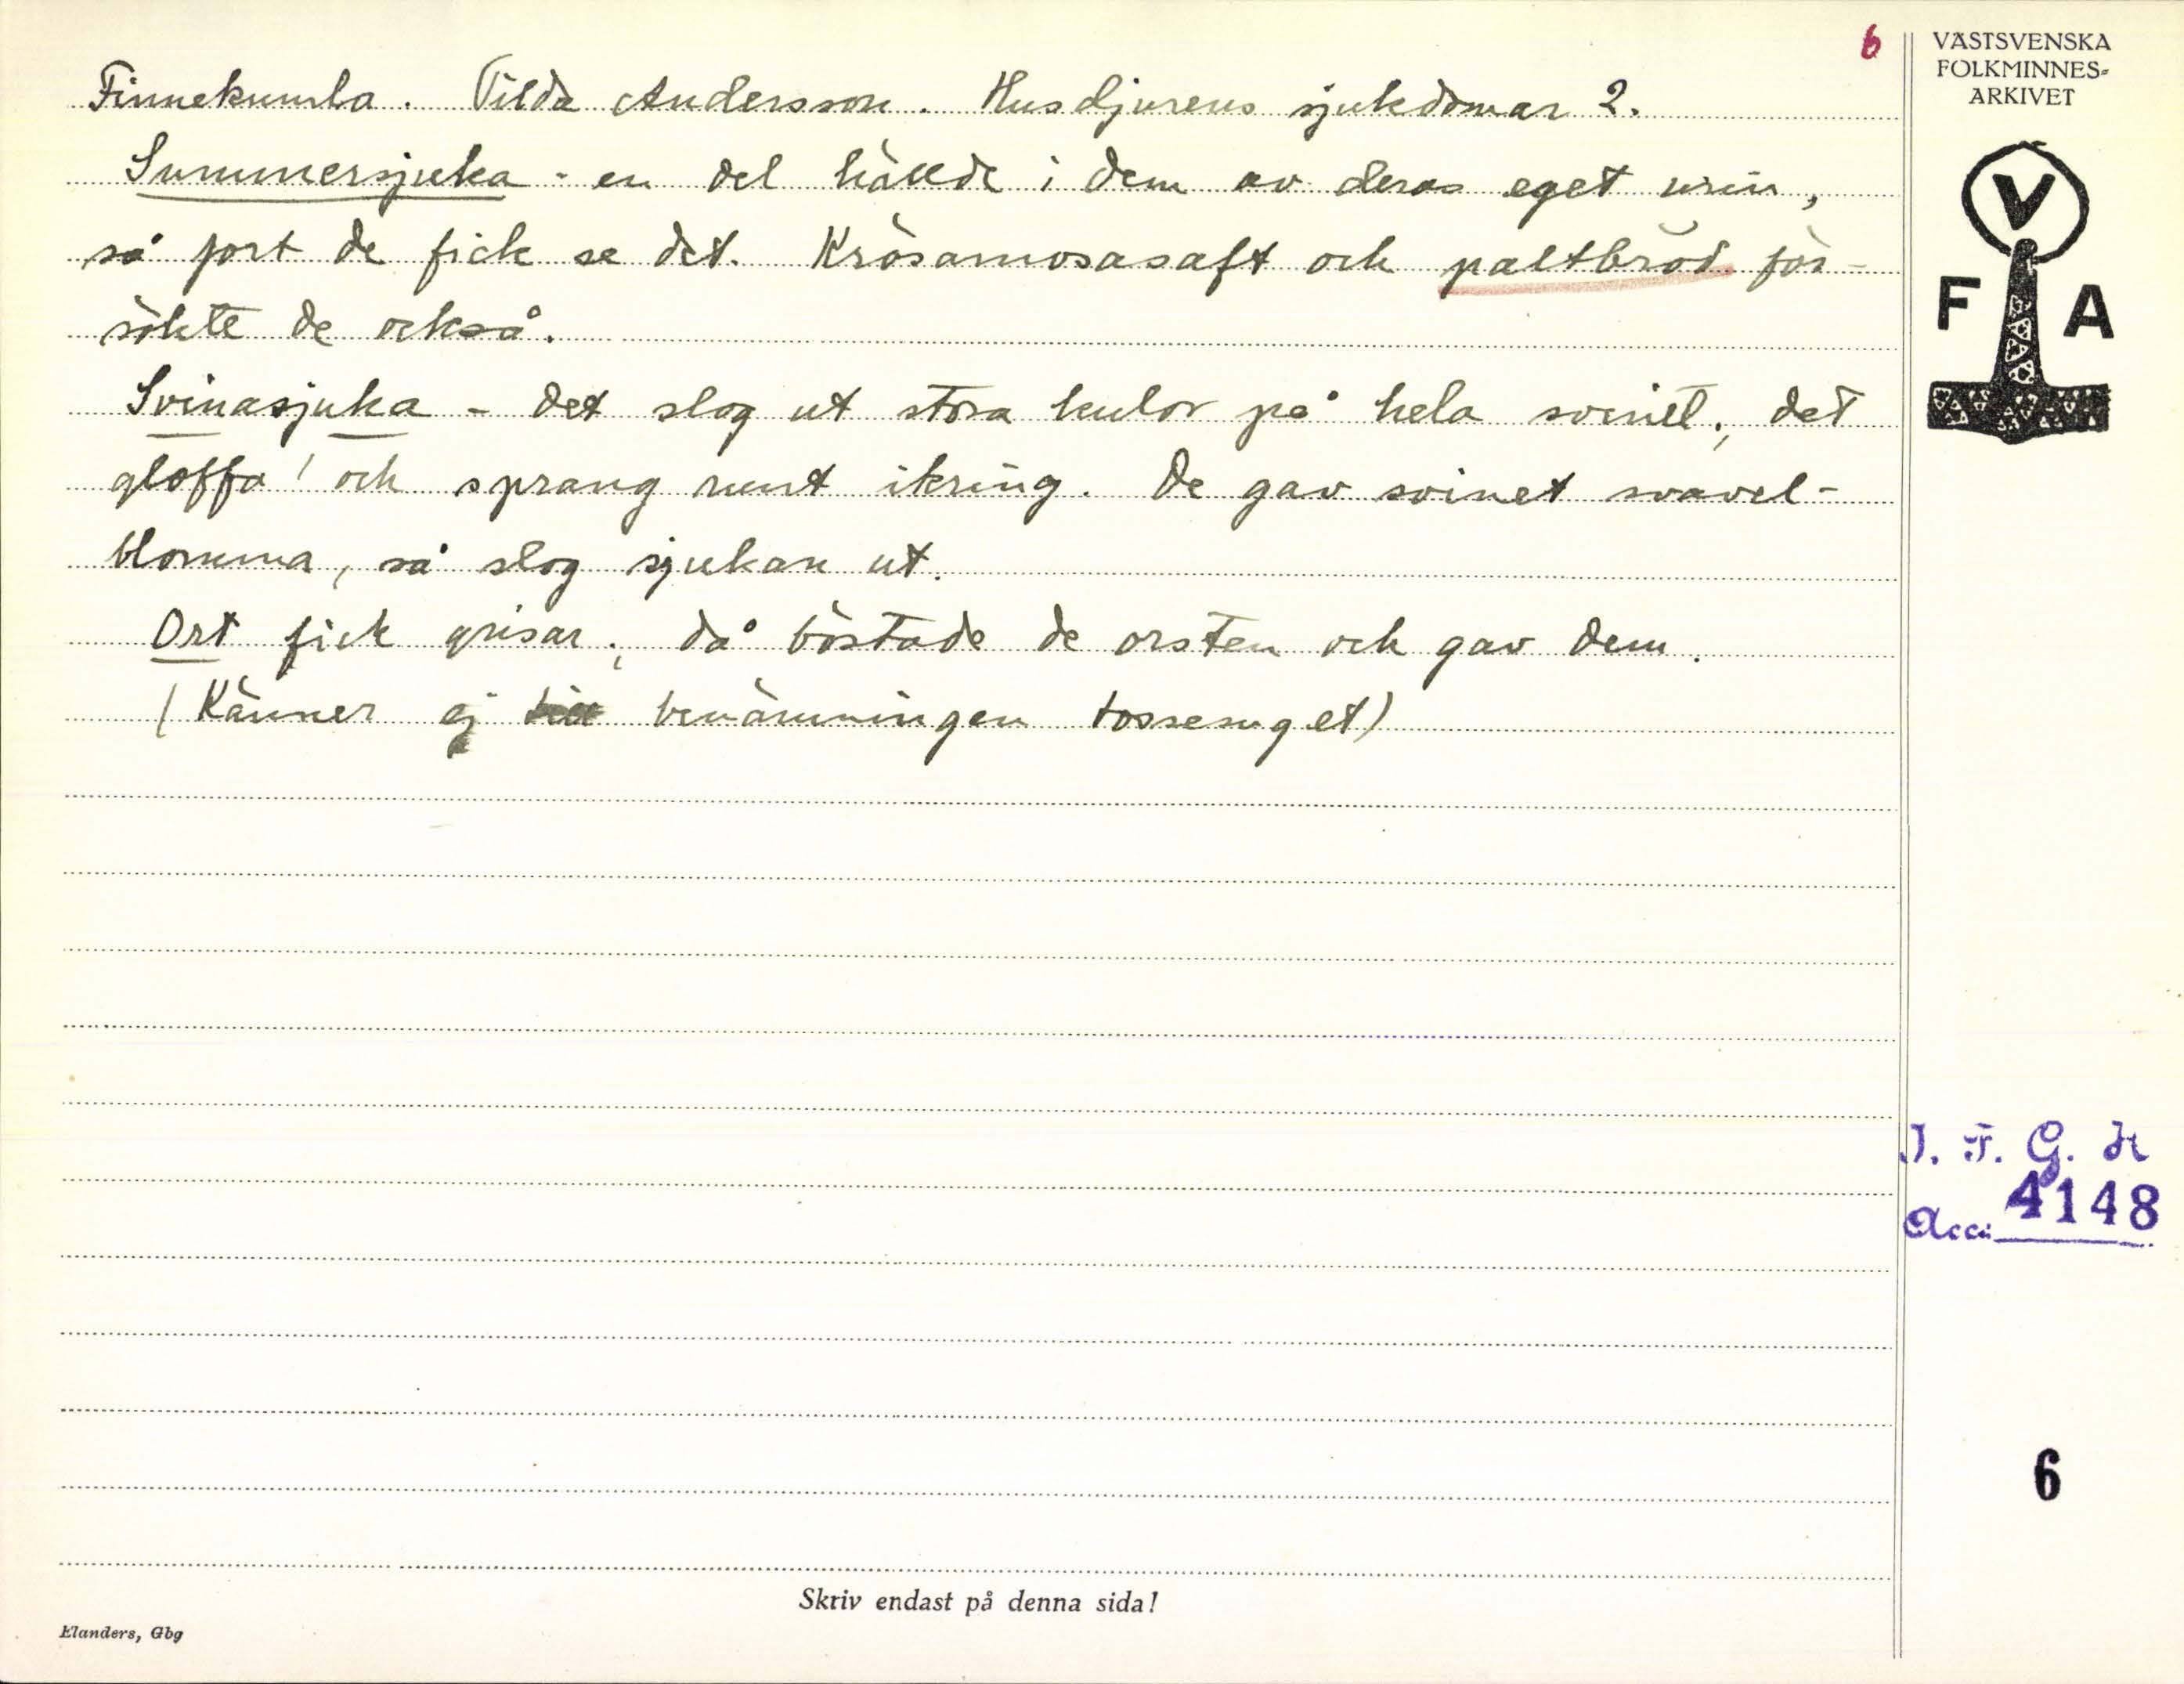 6
Finnekumla. Tilda Andersson. Husdjurens sjukdomar 2.
Summersjuka - en del hällde i dem av deras eget urin,
så fort de fick se det. Krösamosasaft och paltbröd för-
sökte de också.
Svinasjuka - det slog ut stora kulor på hela svinet; det
gloffa! och sprang runt ikring. De gav svinet svavel-
blomma, så slog sjukan ut.
Ort fick grisar; då böstade de orsten och gav dem.
(Känner ej benämningen tossesuget)
VÄSTSVENSKA
FOLKMINNES-
ARKIVET
V
F A
I. F. G. H
Acc. 4148
6
Skriv endast på denna sida!
Elanders, Gbg